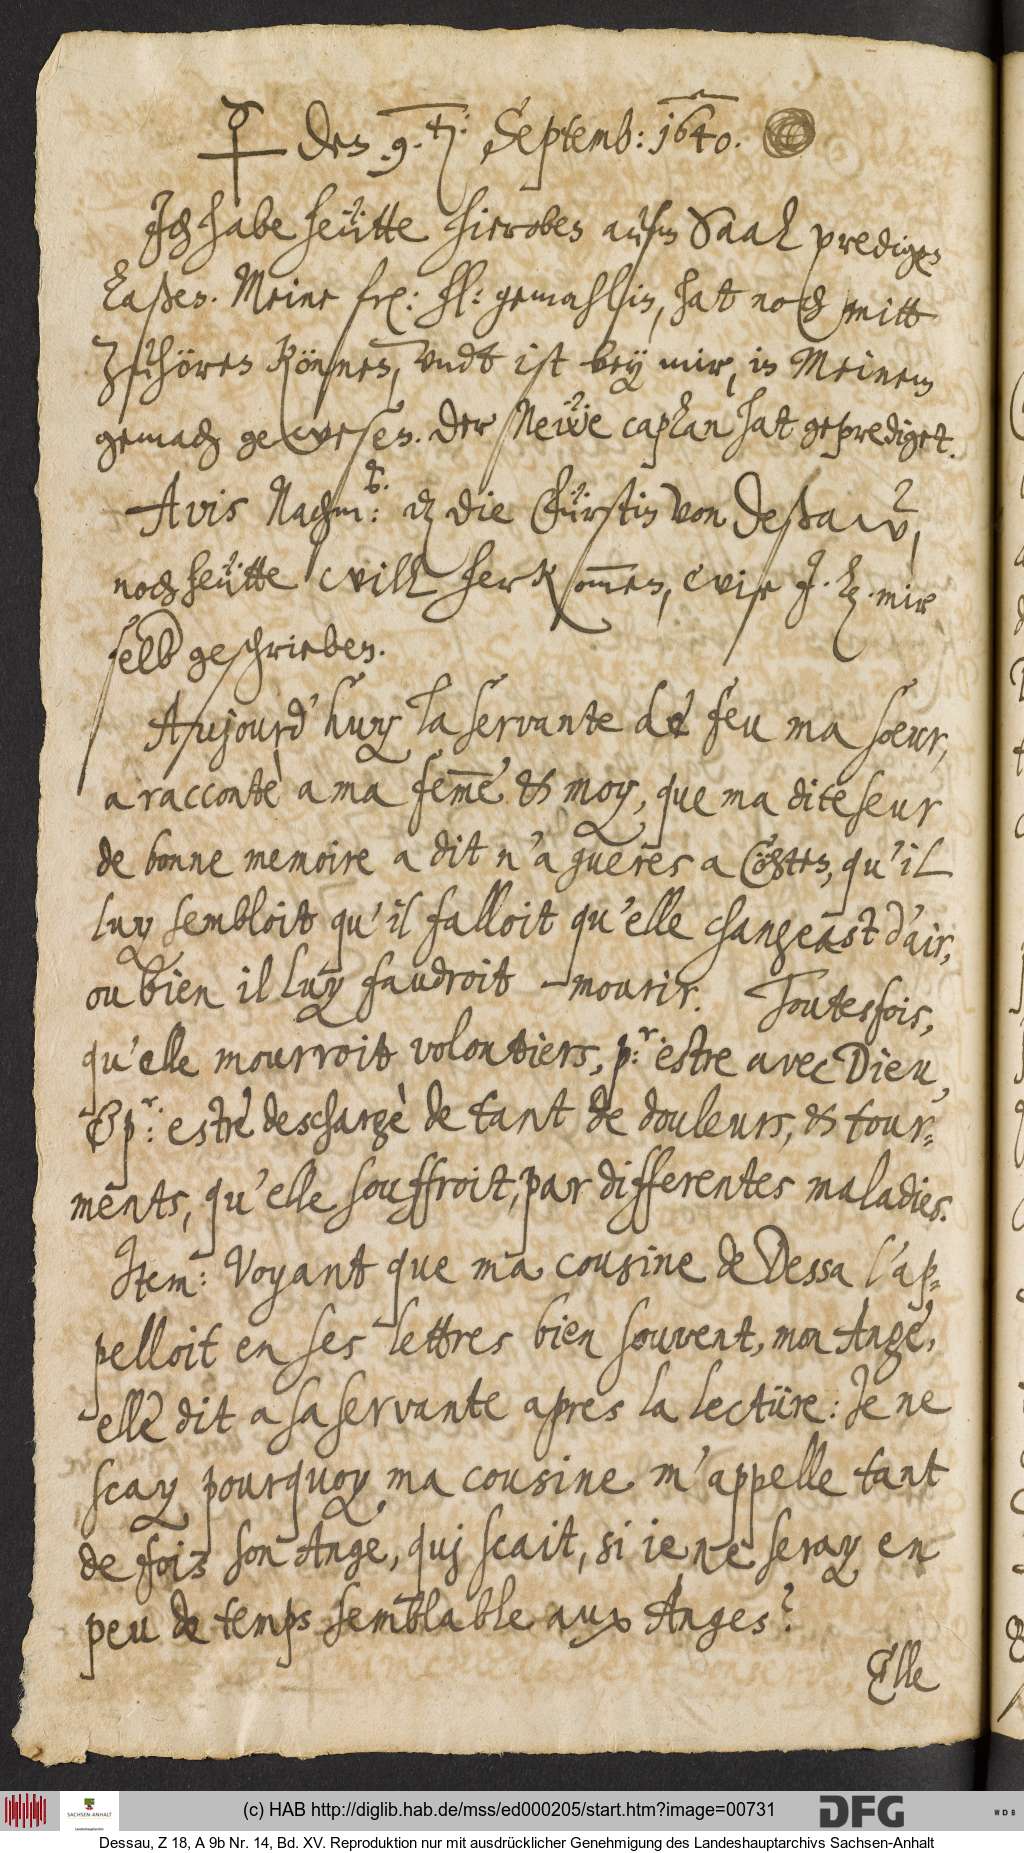 ☿ den 9. ten: Septemb: 1640.
Jch habe heütte hieroben aufm Saal predigen
laßen. Meine fr: hl: gemahlin, hat noch mitt
zuhören können, vndt ist bey mir, in Meinem
gemach gewesen. Der Neẅe caplan hat geprediget.
Avis Nachm: die Fürstin von Deßaw,
noch heütte will herkommen, wie J. L. mir
selb geschrieben.
Aujourd'huy la servante de feu ma sœur,
a racconté a ma feme & moy, que ma dite seur
de bonne memoire a dit n'a gueres a Cöhten, qu'il
luy sembloit qu'il falloit qu'elle changeast d'air,
ou bien il luy faudroit mourir. Toutesfois,
qu'elle mourroit volontiers, p:r estre avec Dieu,
& p:r estre deschargè de tant de douleurs, & tour=
ments, qu'elle souffroit, par differentes maladies.
Jtem: Voyant que ma cousine de Dessa l'ap=
pelloit en ses lettres bien souvent, mon Ange,
elle dit a sa servante apres la lectüre: Je ne
scay pourquoy ma cousine m'appelle tant
de fois son Ange, quj scait, si ie ne seray en
peu de temps semblable aux Anges?
Elle
SACHSEN-ANHALT
(c) HAB http://diglib.hab.de/mss/ed000205/start.htm?image=00731
DFG
WDB
Dessau, Z 18, A 9b Nr. 14, Bd. XV. Reproduktion nur mit ausdrücklicher Genehmigung des Landeshauptarchivs Sachsen-Anhalt